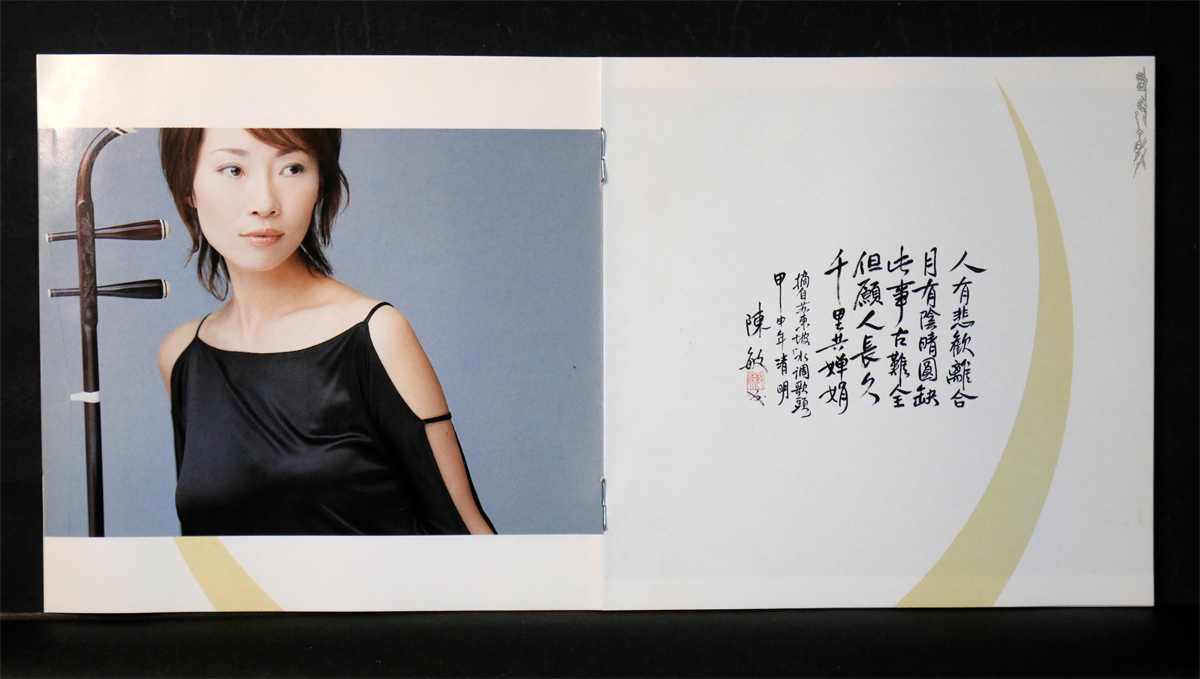 人有悲歡離合
月有陰晴圓缺
此事古難全
但願人長久
千里共嬋娟
摘自苏東坡「水调歌頭」
甲申年清明
陳敏